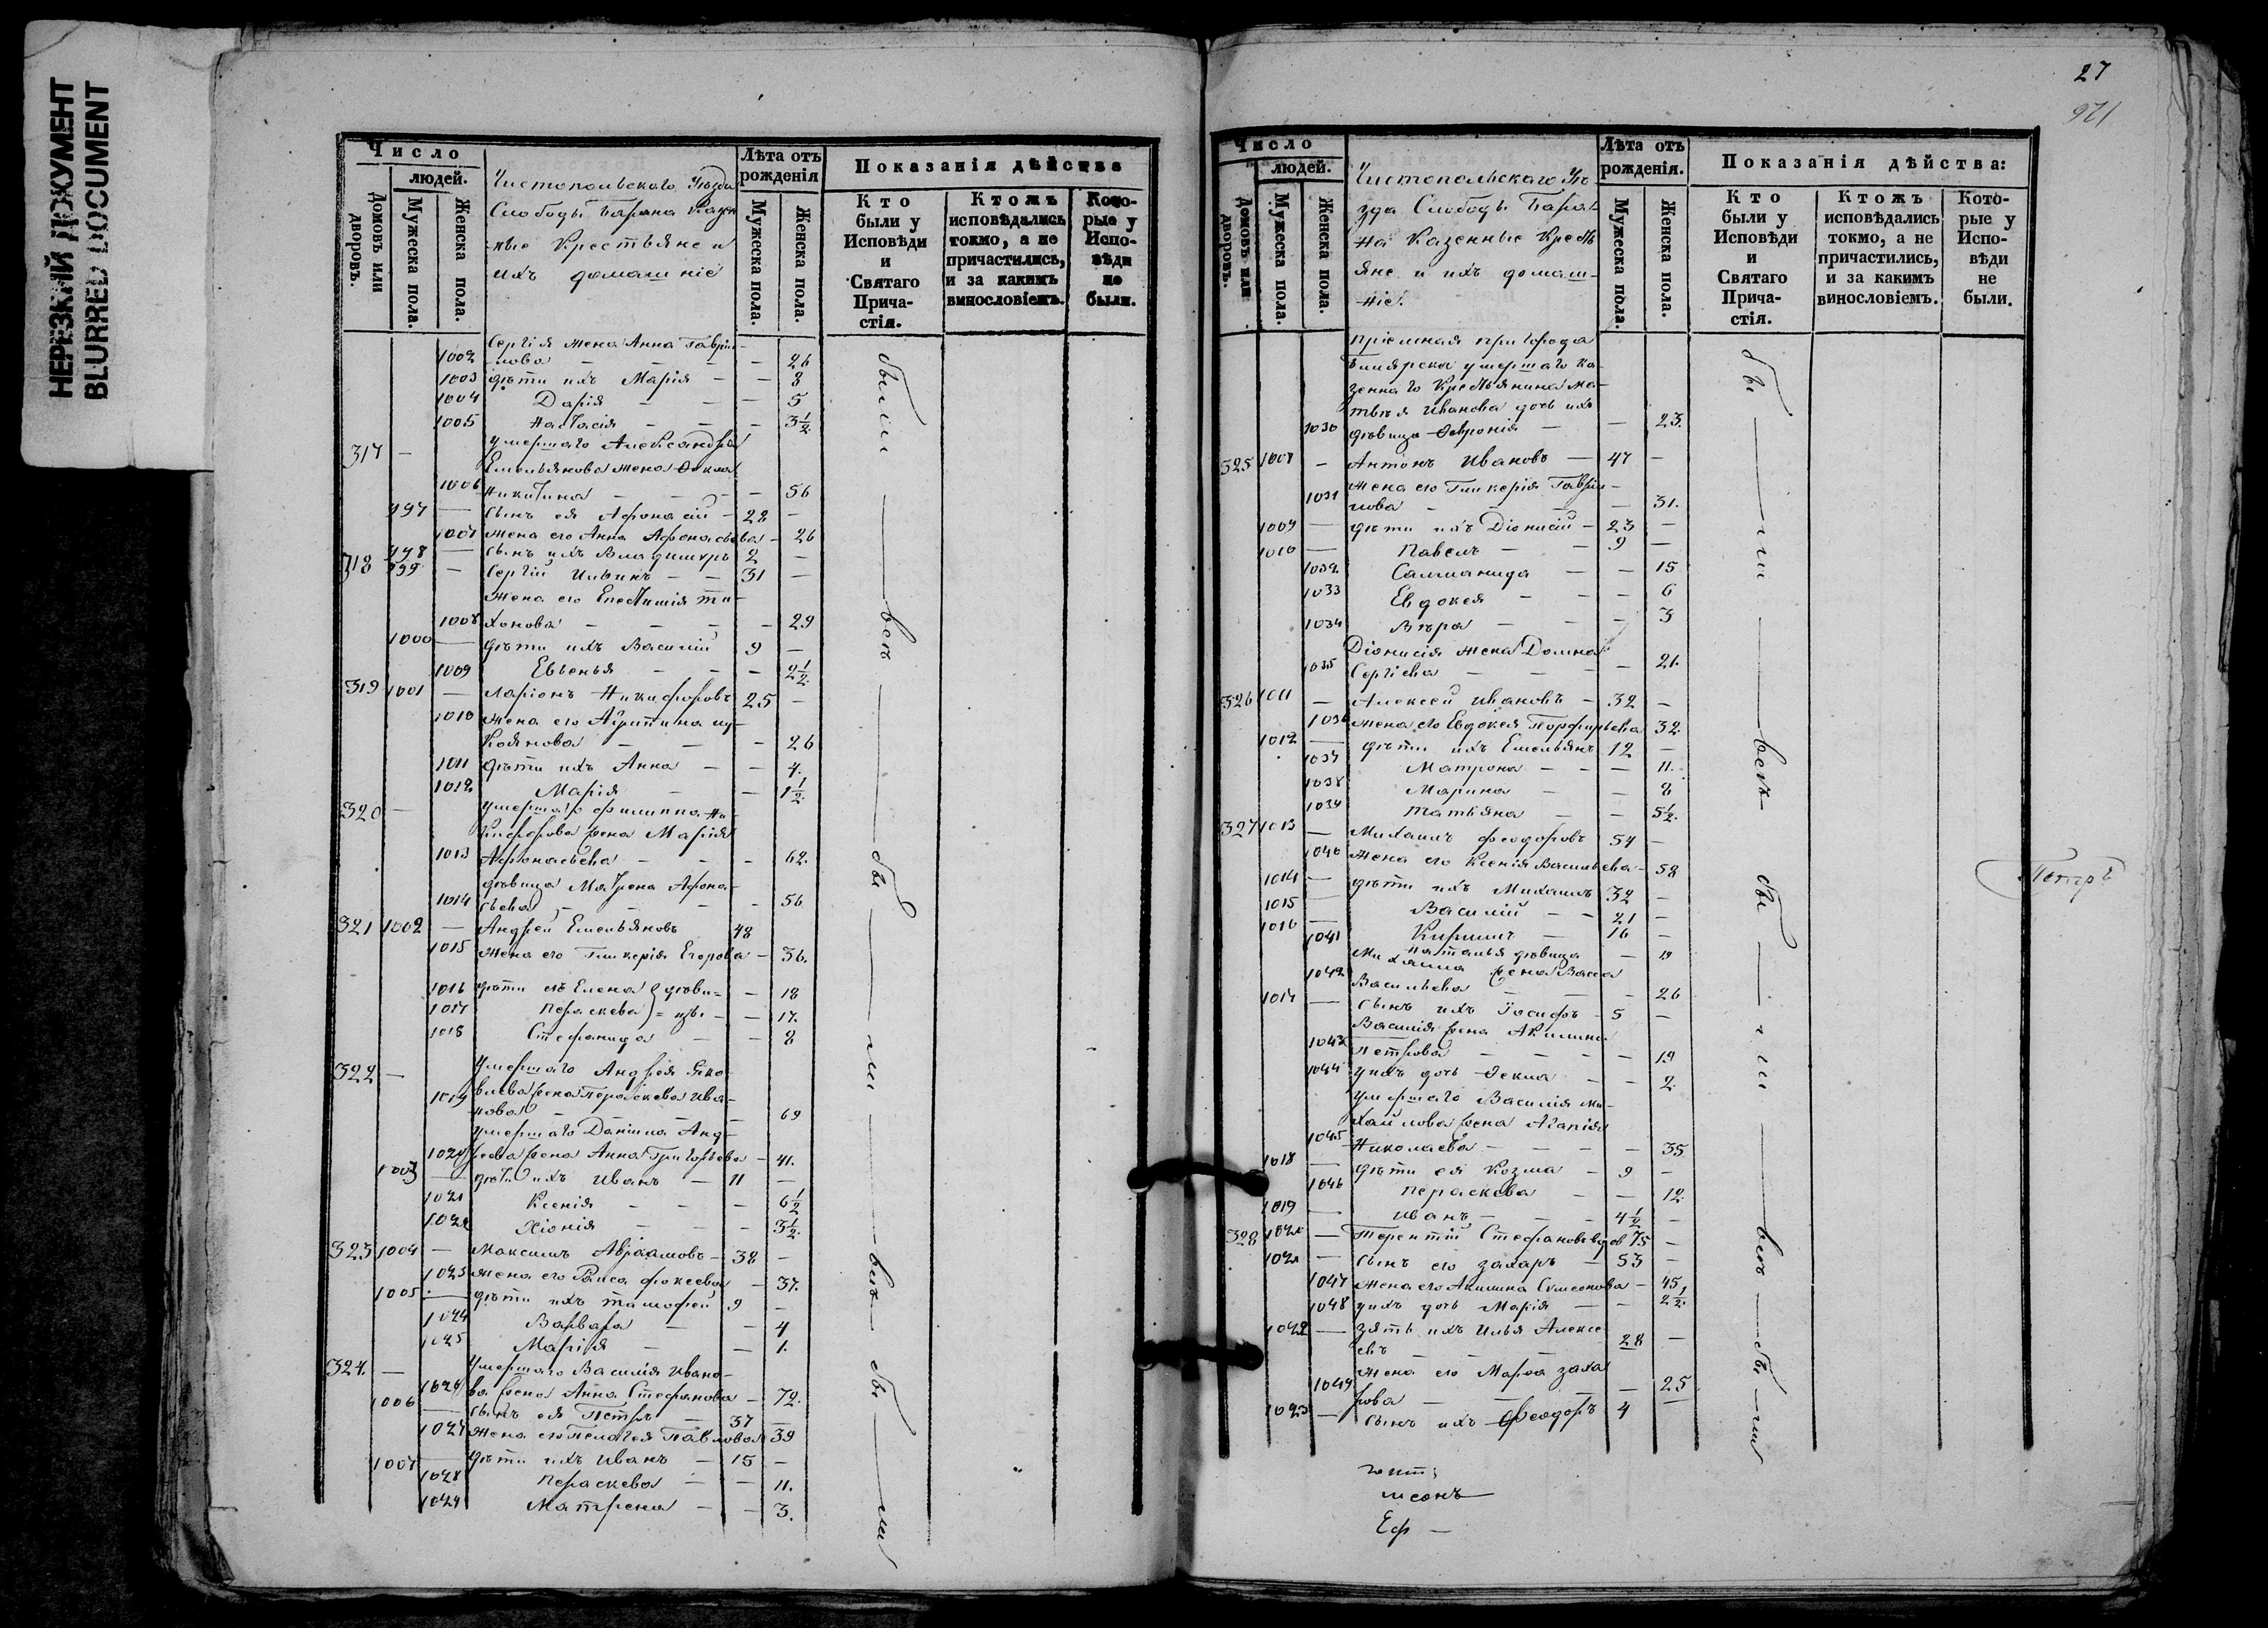 НЕРЕЗКИЙ ДОКУМЕНТ
BLURRED DOCUMENT
Число
людей.
Домовъ или дворовъ.
Мужеска пола.
Женска пола.
Чистопольскаго Уѣзда
Слободы Барана Казен
ные Крестьяне и
ихъ домашніе
Лѣта отъ рожденія
Мужеска пола.
Женска пола.
Показанія дѣйства
Кто были у Исповѣди и Святаго Причастія.
Ктожъ исповѣдались токмо, а не причастились, и за какимъ винословіемъ.
Которые у Исповѣди не были.
Сергія жена Анна Гаврил-
1002 лова — — 26
1003 дѣти ихъ Марія — — 8
1004 Дарія — — 5
1005 Настасія — — 3½
317 — умершаго Александра
Емельянова жена Ѳекла
1006 Никитина — — 56
997 — сынъ ея Афонасій — 28 —
1007 жена его Анна Афонасьева — 26
998 — сынъ ихъ Владимиръ 2 —
318 999 — Сергій Ильинъ — 31 —
жена его Епестимія Ти-
1008 хонова — — 29
1000 — дѣти ихъ Василій 9 —
1009 Евгенья — — 2½
319 1001 — Ларіонъ Никифоровъ 25 —
1010 жена его Агрипина Лу-
коянова — — 26
1011 дѣти ихъ Анна — — 4.
1012 Марія — — 1½
320 — умершаго Филиппа Ни-
кифорова жена Марія
1013 Афонасьева — — 62.
дѣвица Матрена Афона-
1014 сьева — — 56
321 1002 — Андрей Емельяновъ 48
1015 жена его Гликерія Егорова — 36.
1016 дѣти ихъ Елена дѣви= — 18
1017 Пераскева =цы — — 17.
1018 Стефанида — — 8
322 — умершаго Андрея Яко-
1019 влева жена Пераскева Ива-
нова — — 69
умершаго Даніила Анд-
1020 реева жена Анна Григорьева — 41.
1003 — дѣти ихъ Иванъ — 11 —
1021 Ксенія — — 6½
1022 Хіонія — — 3½
323 1004 — Максимъ Авраамовъ — 38 —
1023 жена его Раиса Фокеева — 37.
1005 — дѣти ихъ Тимофей 9 —
1024 Варвара — — 4
1025 Марія — — 1.
324. — умершаго Василія Ивано-
1026 ва жена Анна Стефанова — 72.
1006 — сынъ ея Петръ — 37 —
1027 жена его Пелагея Павлова 39
1007 — дѣти ихъ Иванъ — 15 —
1028 Пераскева — — 11.
1029 Матрена — — 3.
были — всѣ — бы — ли — всѣ — бы — ли
27
921
Число
людей.
Домовъ или дворовъ.
Мужеска пола.
Женска пола.
Чистопольскаго Уѣ-
зда Слободы Бара-
на Казенные Кресть
яне и ихъ домаш-
ніе.
Лѣта отъ рожденія.
Мужеска пола.
Женска пола.
Показанія дѣйства:
Кто были у Исповѣди и Святаго Причастія.
Ктожъ исповѣдались токмо, а не причастились, и за какимъ винословіемъ.
Которые у Исповѣди не были.
пріемная пригорода
Билярска умершаго ка-
зеннаго Крестьянина Ма-
твѣя Иванова дочь ихъ
1030 дѣвица Февронія — — 23.
325 1008 — Антонъ Ивановъ — 47 —
жена его Гликерія Гаврил-
1031 лова — — 31.
1009 — дѣти ихъ Діонисій — 23 —
1010 — Павелъ — 9 —
1032 Саломанида — — 15
1033 Евдокея — — 6
1034 Вѣра — — 3
Діонисія жена Домна
1035 Сергіева — — 21.
326 1011 — Алексей Ивановъ — 32 —
1036 жена его Евдокея Порфирьева 32.
1012 — дѣти ихъ Емельянъ 12 —
1037 Матрона — — 11.
1038 Марина — — 8
1039 Татьяна — — 5½.
327 1013 — Михаилъ Феодоровъ 54 —
1040 жена его Ксенія Васильева — 58
1014 — дѣти ихъ Михаилъ 32 —
1015 — Василій — 21 —
1016 — Кирилъ — 16 —
1041 Наталья дѣвица — 19
Михаила жена Васса
1042 Васильева — — 26
1017 — сынъ ихъ Іосифъ — 5 —
Василія жена Акилина
1043 Петрова — — 19
1044 у ихъ дочь Ѳекла — — 2.
умершаго Василія Ми-
хайлова жена Агапія
1045 Николаева — — 35
1018 — дѣти ея Козма — 9 —
1046 Пераскева — — 12.
1019 — Иванъ — 4½ —
328 1020 — Терентій Стефановъ вдов 75 —
1021 — сынъ его Захаръ — 53 —
1047 жена его Акилина Симеонова — 45
1048 у ихъ дочь Марія — — 2½.
1022 — зять ихъ Илья Алексе
евъ — 28 —
жена его Марѳа Заха
1049 рова — — 25
1023 — сынъ ихъ Феодоръ 4 —
бы — ли — всѣ — бы — ли — всѣ — бы — ли
Петръ
Еф —